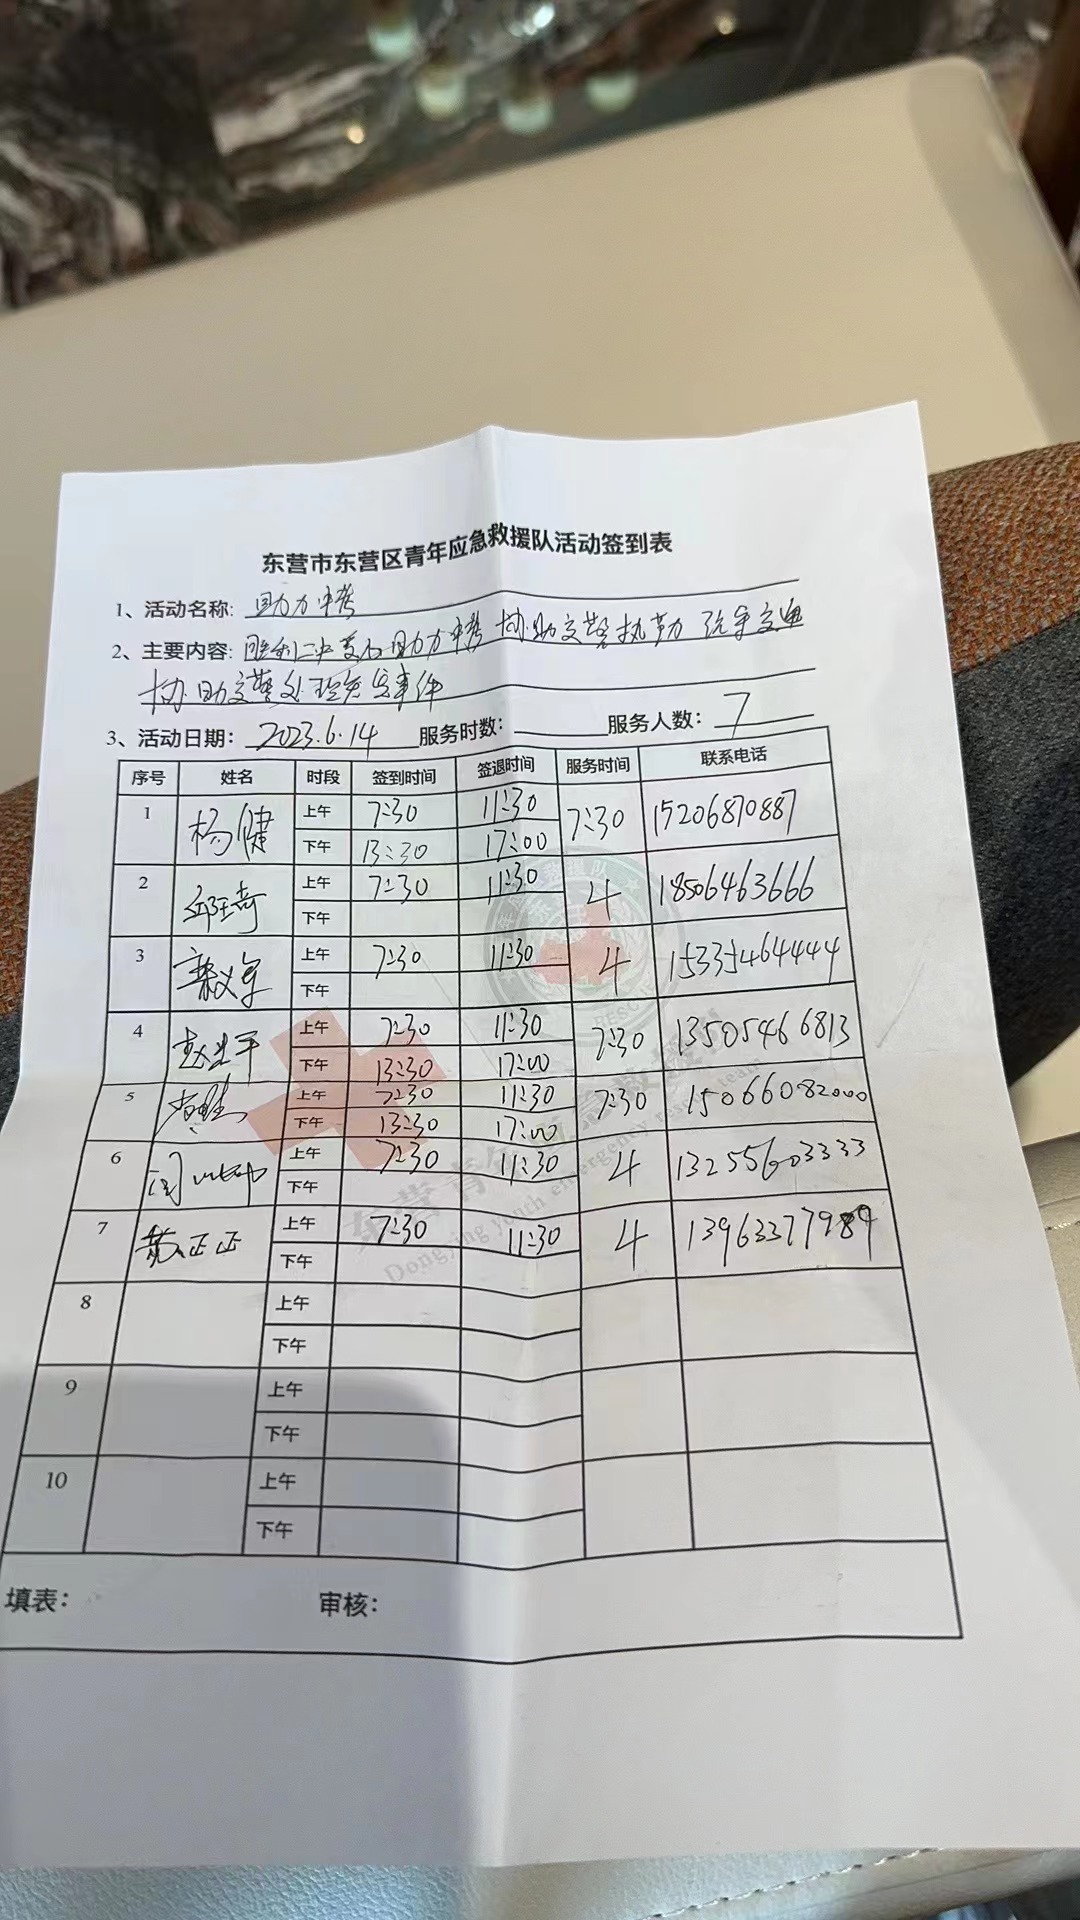 东营市东营区青年应急救援队活动签到表
1、活动名称: 助力中考
2、主要内容: 胜利二中 助力中考 协助交警执勤 交通
协助交警处理突发事件
3、活动日期: 2023.6.14 服务时数: 服务人数: 7
序号 姓名 时段 签到时间 签退时间 服务时间 联系电话
1 杨健 上午 7:30 11:30 7:30 15206870887
下午 13:30 17:00
2 上午 7:30 11:30 4 18506463666
下午
3 上午 7:30 11:30 4 15335464444
下午
4 上午 7:30 11:30 7:30 13505466813
下午 13:30 17:00
5 上午 7:30 11:30 7:30 15066082000
下午 13:30 17:00
6 上午 7:30 11:30 4 13255603333
下午
7 黄正正 上午 7:30 11:30 4 13963377989
下午
8 上午
下午
9 上午
下午
10 上午
下午
填表: 审核:
东营青年应急救援队
Dongying youth emergency rescue team